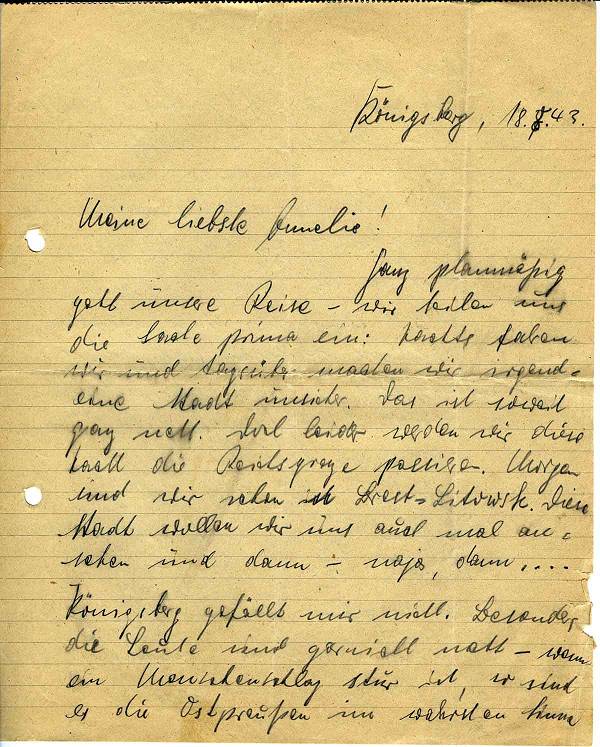 Königsberg, 18.8.43.
Meine liebste Annelie!
Ganz planmäßig
geht unsere Reise – wir teilen uns
die Sache prima ein: Nachts fahren
wir und tagsüber machen wir irgend=
eine Stadt unsicher. Das ist soweit
ganz nett. Doch leider werden wir diese
Nacht die Reichsgrenze passieren. Morgen
sind wir schon in Brest=Litowsk. Diese
Stadt wollen wir uns auch mal an=
sehen und dann – naja, dann, ....
Königsberg gefällt mir nicht. Besonders
die Leute sind garnicht nett – wenn
ein Menschenschlag stur ist, so sind
es die Ostpreußen im wahrsten Sinne